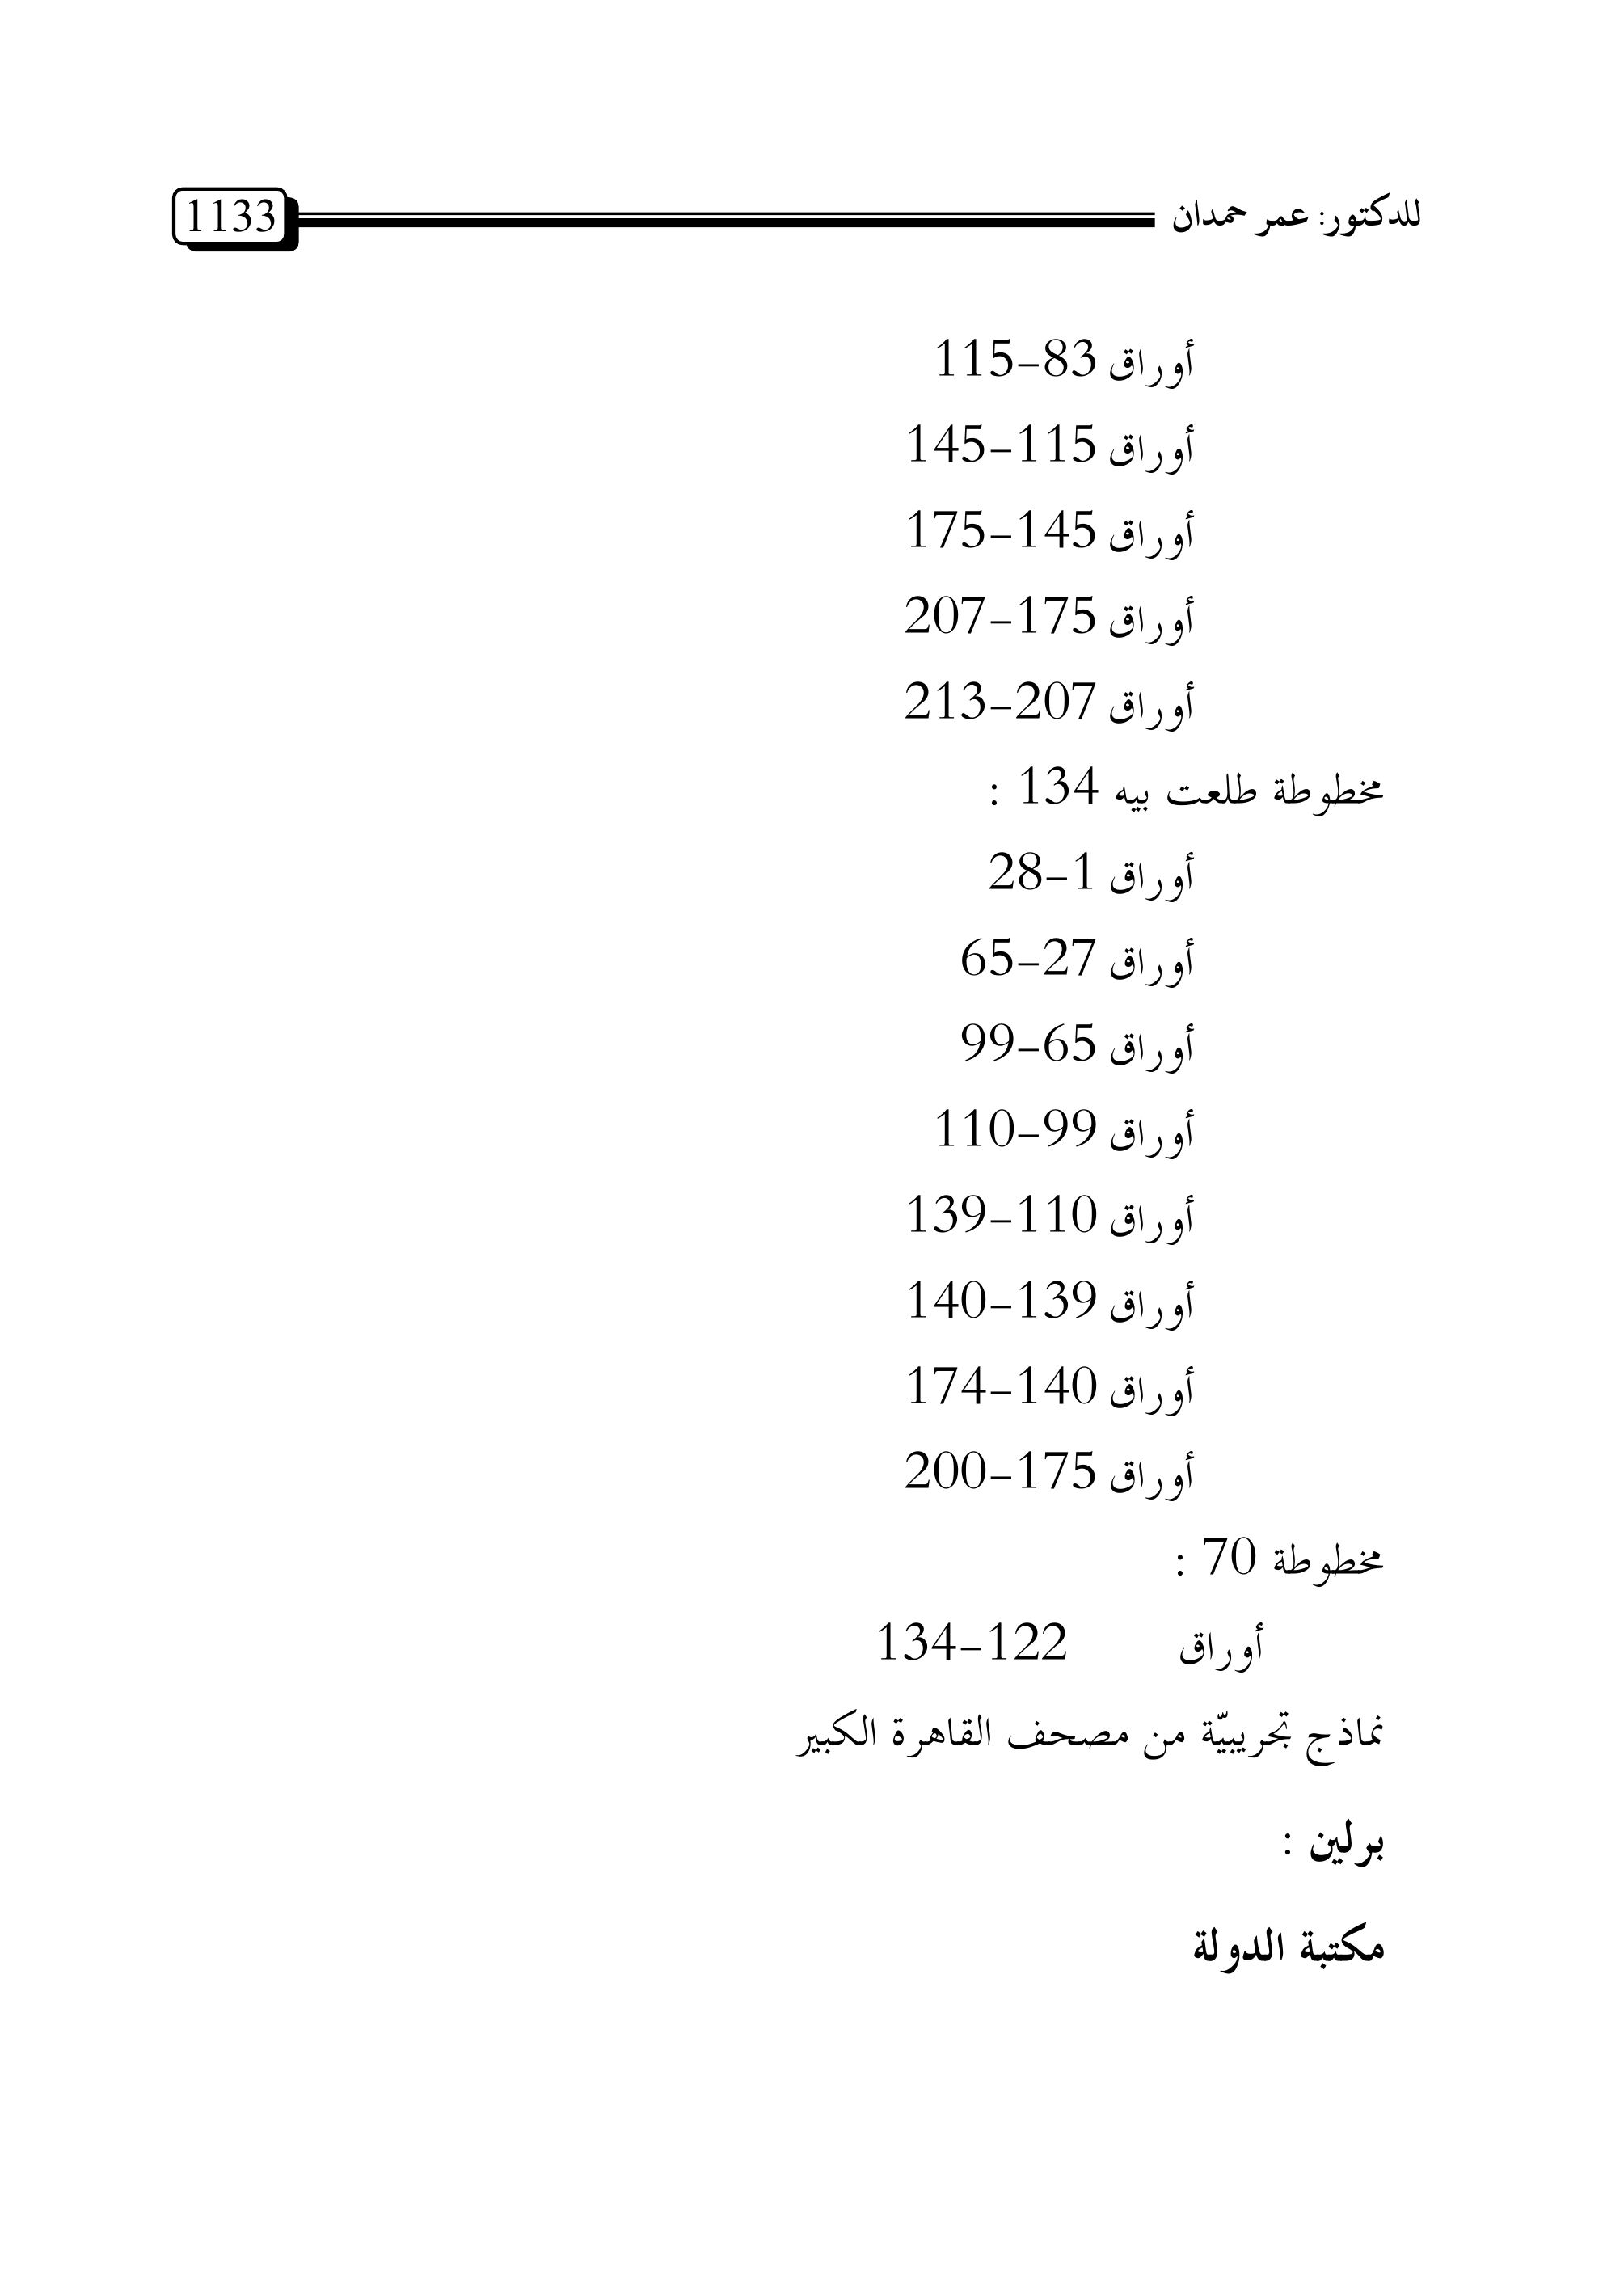 للدكتور: عمر حمدان
1133
أوراق 83–115
أوراق 115–145
أوراق 145–175
أوراق 175–207
أوراق 207–213
مخطوطة طلعت بيه 134 :
أوراق 1–28
أوراق 27–65
أوراق 65–99
أوراق 99–110
أوراق 110–139
أوراق 139–140
أوراق 140–174
أوراق 175–200
مخطوطة 70 :
أوراق 122–134
نماذج تجريبيّة من مصحف القاهرة الكبير
برلين :
مكتبة الدولة